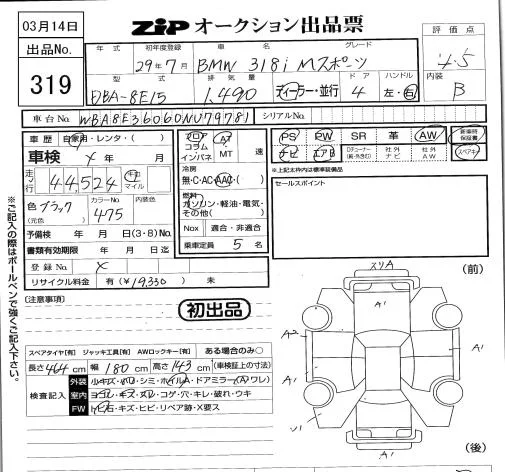 03月14日
ZIP オークション出品票
出品No.
319
評価点
4.5
内装
B
年式 初年度登録 車名 グレード
29年7月 BMW 318i Mスポーツ
型式 排気量 ドア ハンドル
DBA-8E15 1,490 ディーラー・並行 4 左・右
車台No. WBA8E36060NU79781 シリアルNo.
車歴 自家用・レンタ・( )
車検 年 月
走行 44,524 キロ マイル
色 ブラック (元色) カラーNo 475 内装色
予備検 年 月 日(3・8)No.
書類有効期限 年 月 日迄
登録No.
リサイクル料金 有(¥19,330) 未
フロア コラム インパネ AT・MT 速
冷房
無・C・AC・AAC・( )
燃料
ガソリン・軽油・電気・その他( )
Nox 適合・非適合
乗車定員 5 名
PS PW SR 革 AW 新車時保証書
ナビ エアB 社外ナビ 社外AW スペアキー
※上記太枠内は標準装備品
セールスポイント
(注意事項)
初出品
スペアタイヤ[有] ジャッキ工具[有] AWロックキー[有] ある場合のみ○
長さ 464 cm 幅 180 cm 高さ 143 cm (車検証上の寸法)
検査記入
外装 小キズ・ホイルA・ドアミラー(A・ワレ)
室内 ヨゴレ・キズ・スレ・コゲ・穴・キレ・破れ・ウキ
FW トビ石・キズ・ヒビ・リペア跡・X要ス
※ご記入の際はボールペンで強くご記入下さい。
スリA
(前)
A1
A2
A1
A1
A1
(後)